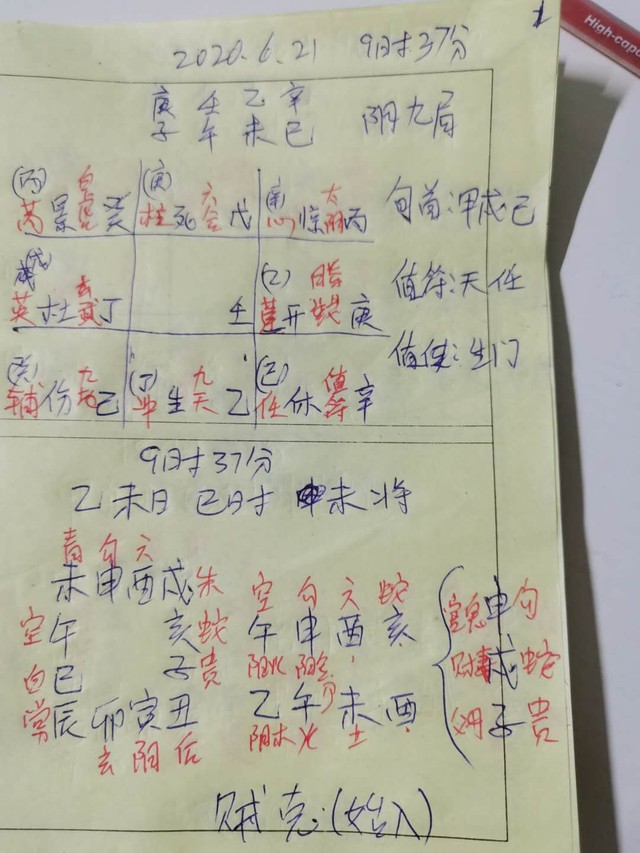 2020.6.21 9时37分
庚 壬 乙 辛
子 午 未 巳 阴九局
High-capa
(丙) (庚) 六 太
芮景 癸 柱死合戊 心惊阴丙 旬首:甲戌己
(戊) 玄 (乙)
英杜武丁 壬 蓬开 庚 值符:天任
值使:生门
九 (丁) 九 (己) 值
辅伤地己 生天乙 任休符辛
9时37分
乙未日 巳时 未将
青 勾 六
未申酉戌朱 空 勾 六 蛇
空午 亥蛇 午 申 酉 亥 申勾
白巳 子贵 阴火 阳金 财 戌蛇
常辰卯寅丑 乙 午 未 酉 父母子贵
玄 阴 后 阴木 火 土
贼克(始入)